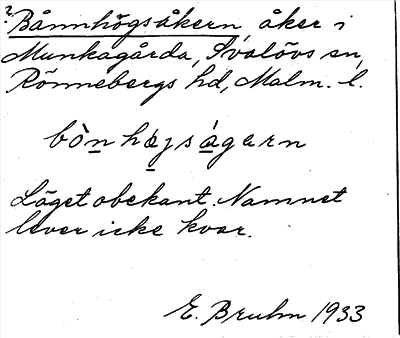 ? Bånnhögsåkern, åker i
Munkagårda, Svalövs sn,
Rönnebergs hd, Malm. l.
bòn højságarn
Läget obekant. Namnet
lever icke kvar.
E. Bruhn 1933